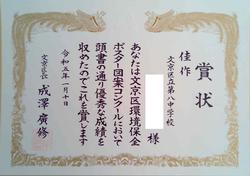 賞状
佳作
文京区立第八中学校
様
あなたは文京区環境保全
ポスター図案コンクールにおいて
頭書の通り優秀な成績を
収めたのでこれを賞します
令和五年一月十日
文京区長
成澤廣修